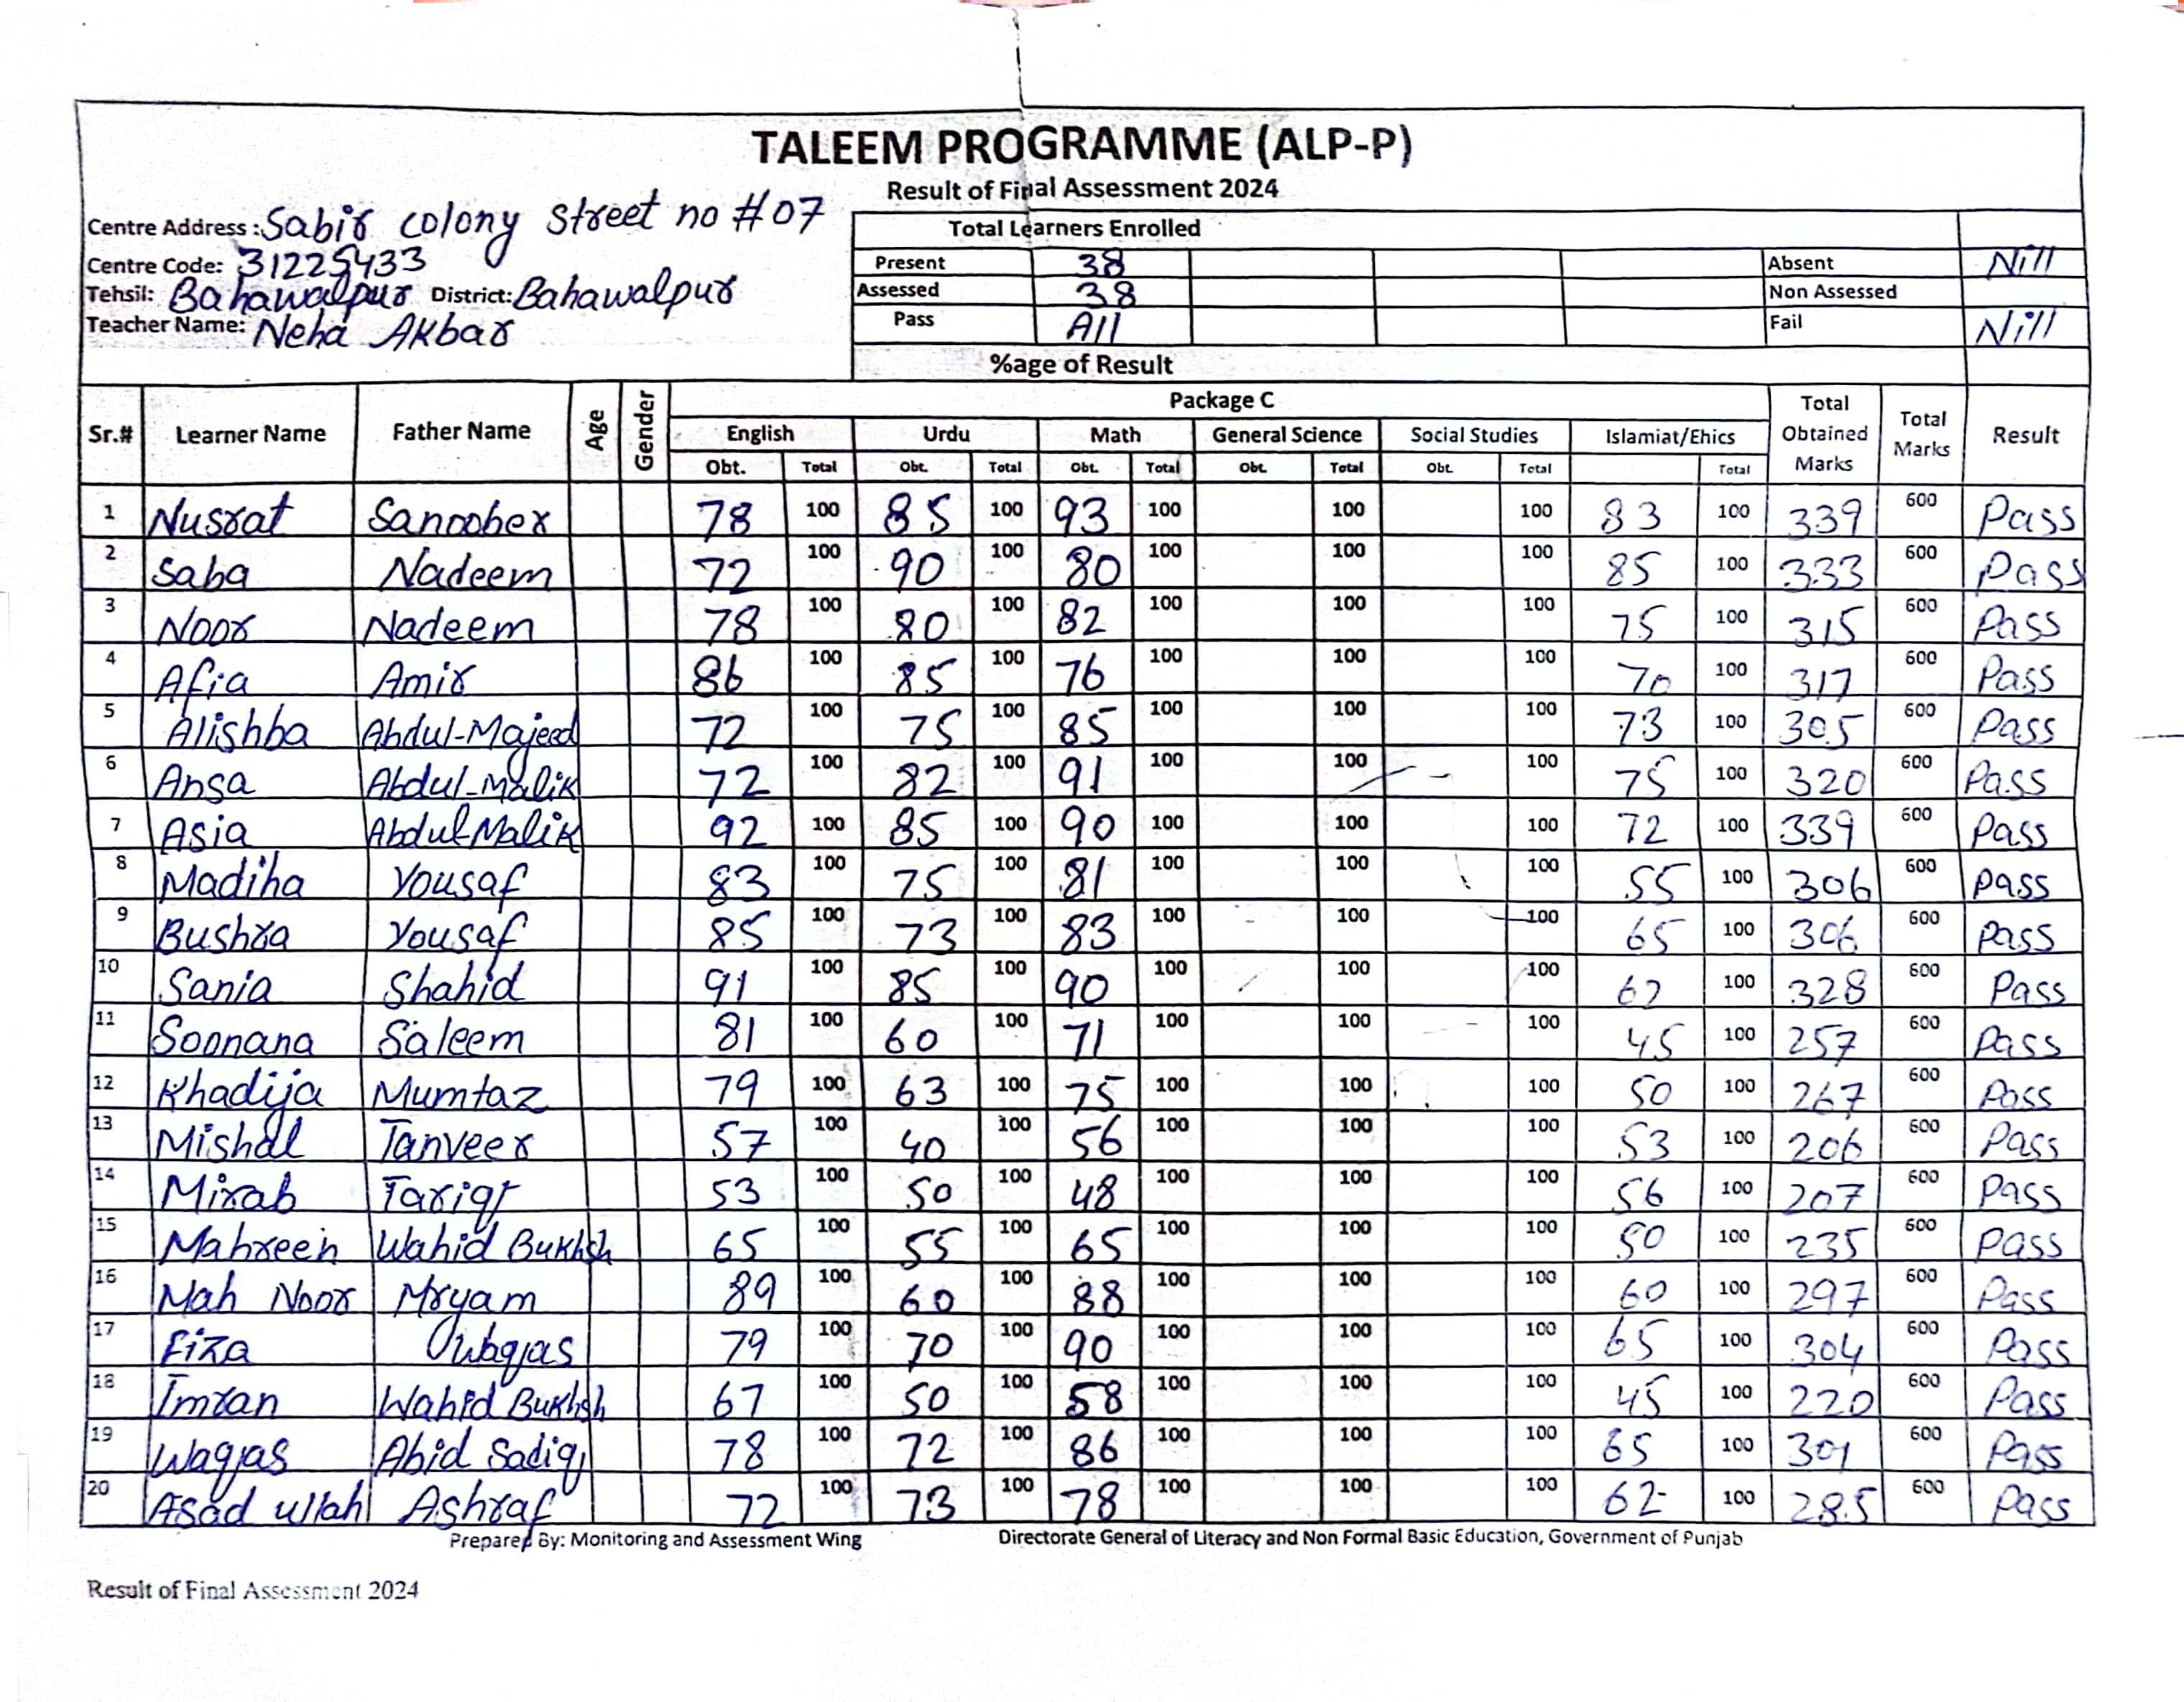 TALEEM PROGRAMME (ALP-P)
Result of Final Assessment 2024
Centre Address : Sabir colony street no #07
Centre Code: 31225433
Tehsil: Bahawalpur District: Bahawalpur
Teacher Name: Neha Akbar
Total Learners Enrolled
Present 38 Absent Nill
Assessed 38 Non Assessed
Pass All Fail Nill
%age of Result
Sr.# Learner Name Father Name Age Gender Package C Total Obtained Marks Total Marks Result
English Urdu Math General Science Social Studies Islamiat/Ehics
Obt. Total Obt. Total Obt. Total Obt. Total Obt. Total Total
1 Nusrat Sanoober 78 100 85 100 93 100 100 100 83 100 339 600 Pass
2 Saba Nadeem 72 100 90 100 80 100 100 100 85 100 333 600 Pass
3 Noor Nadeem 78 100 80 100 82 100 100 100 75 100 315 600 Pass
4 Afia Amir 86 100 85 100 76 100 100 100 70 100 317 600 Pass
5 Alishba Abdul-Majeed 72 100 75 100 85 100 100 100 73 100 305 600 Pass
6 Ansa Abdul-Malik 72 100 82 100 91 100 100 100 75 100 320 600 Pass
7 Asia Abdul Malik 92 100 85 100 90 100 100 100 72 100 339 600 Pass
8 Madiha Yousaf 83 100 75 100 81 100 100 100 55 100 306 600 Pass
9 Bushra Yousaf 85 100 73 100 83 100 100 100 65 100 306 600 Pass
10 Sania Shahid 91 100 85 100 90 100 100 100 62 100 328 600 Pass
11 Soonana Saleem 81 100 60 100 71 100 100 100 45 100 257 600 Pass
12 Khadija Mumtaz 79 100 63 100 75 100 100 100 50 100 267 600 Pass
13 Mishal Tanveer 57 100 40 100 56 100 100 100 53 100 206 600 Pass
14 Mirab Tariq 53 100 50 100 48 100 100 100 56 100 207 600 Pass
15 Mahreen Wahid Bukhsh 65 100 55 100 65 100 100 100 50 100 235 600 Pass
16 Mah Noor Mryam 89 100 60 100 88 100 100 100 60 100 297 600 Pass
17 Fiza Waqas 79 100 70 100 90 100 100 100 65 100 304 600 Pass
18 Imran Wahid Bukhsh 67 100 50 100 58 100 100 100 45 100 220 600 Pass
19 Waqas Abid Sadiq 78 100 72 100 86 100 100 100 65 100 301 600 Pass
20 Asad ullah Ashraf 72 100 73 100 78 100 100 100 62 100 285 600 Pass
Prepared By: Monitoring and Assessment Wing Directorate General of Literacy and Non Formal Basic Education, Government of Punjab
Result of Final Assessment 2024